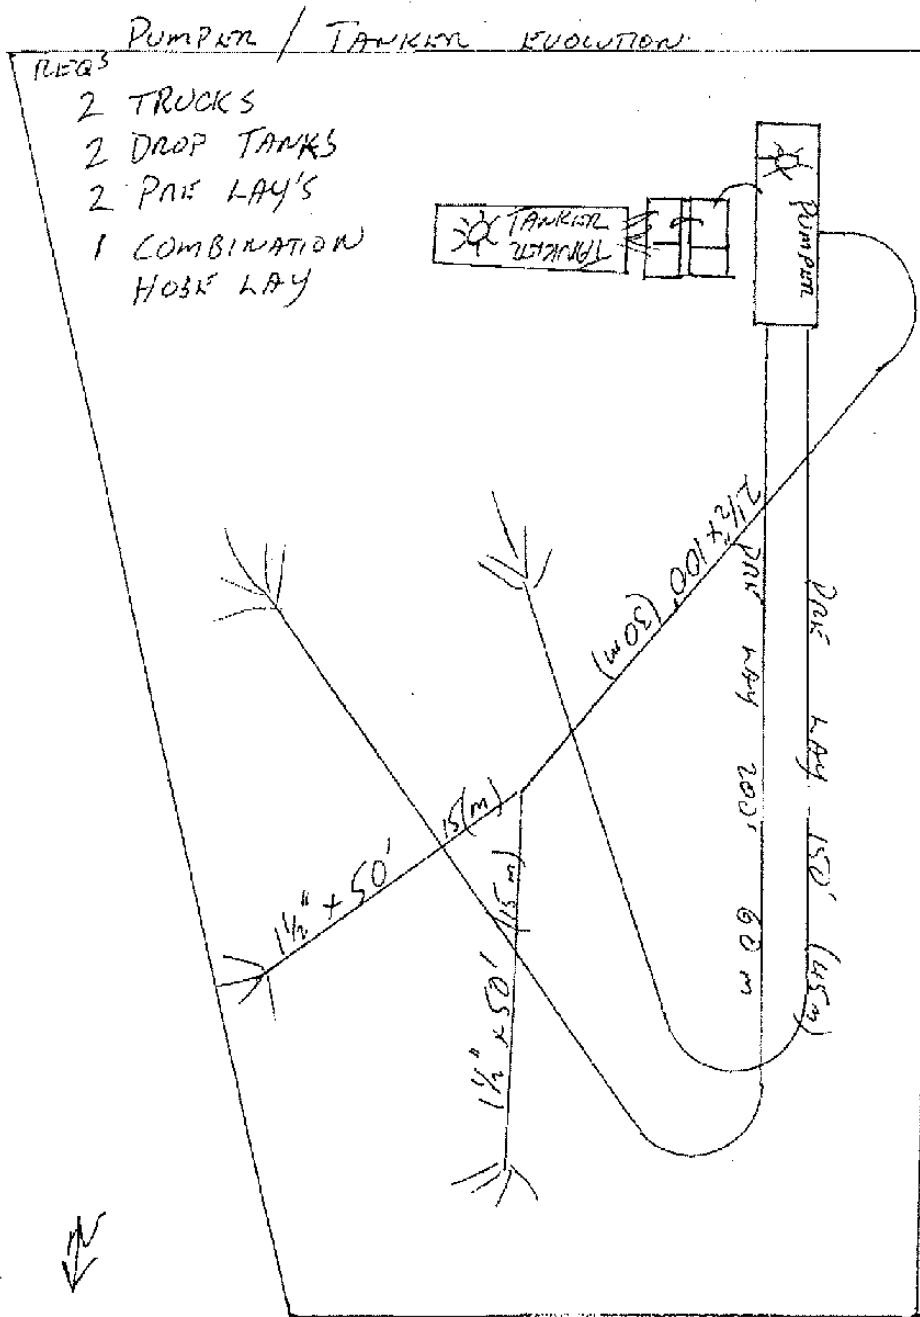 PUMPER / TANKER EVOLUTION
REQS
2 TRUCKS
2 DROP TANKS
2 PRE LAY'S
1 COMBINATION
HOSE LAY
TANKER
TANKER
PUMPER
2½" x 100' (30m)
PRE LAY 200' 60 m
PRE LAY 150' (45m)
1½" x 50' 15(m)
1½" x 50' (15m)
N